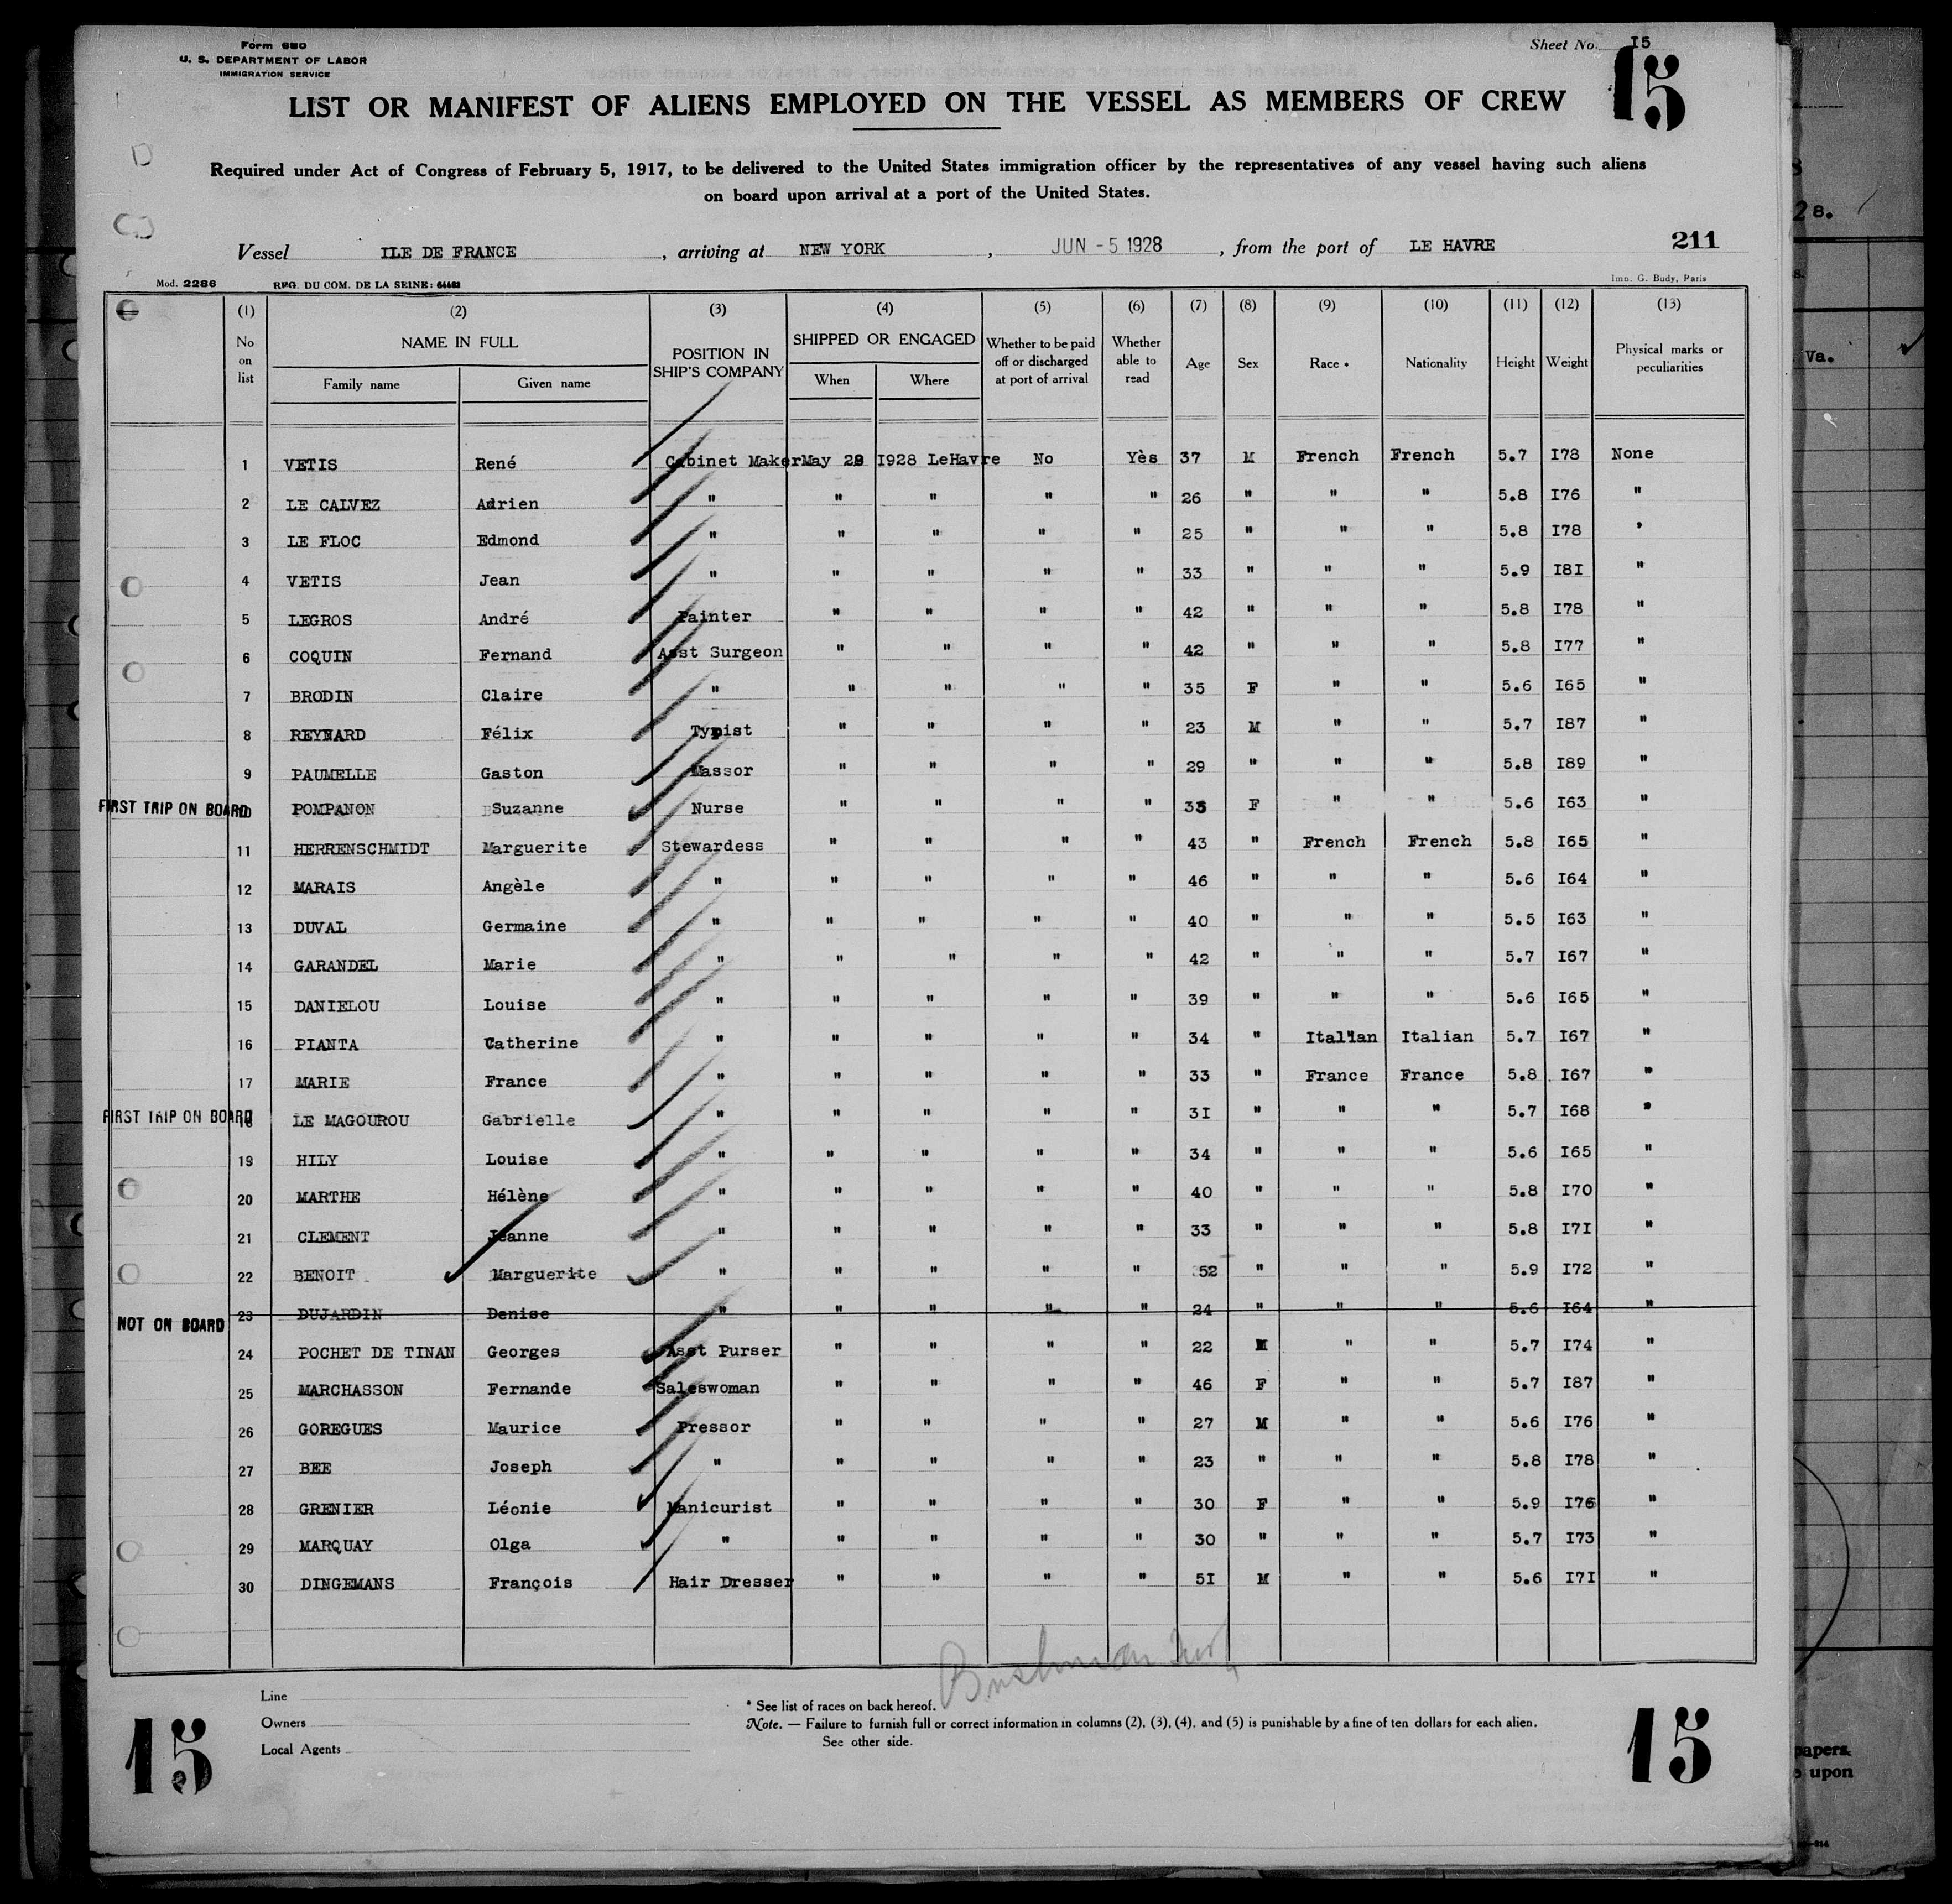 Form 680
U. S. DEPARTMENT OF LABOR
IMMIGRATION SERVICE
Sheet No. I5
15
LIST OR MANIFEST OF ALIENS EMPLOYED ON THE VESSEL AS MEMBERS OF CREW
Required under Act of Congress of February 5, 1917, to be delivered to the United States immigration officer by the representatives of any vessel having such aliens
on board upon arrival at a port of the United States.
Vessel ILE DE FRANCE, arriving at NEW YORK, JUN -5 1928, from the port of LE HAVRE 211
Mod. 2286 REG. DU COM. DE LA SEINE: 64483 Imp. G. Budy, Paris
(1) (2) (3) (4) (5) (6) (7) (8) (9) (10) (11) (12) (13)
No on list NAME IN FULL Family name Given name POSITION IN SHIP'S COMPANY SHIPPED OR ENGAGED When Where Whether to be paid off or discharged at port of arrival Whether able to read Age Sex Race * Nationality Height Weight Physical marks or peculiarities
1 VETIS René Cabinet Maker May 28 I928 LeHavre No Yès 37 M French French 5.7 I73 None
2 LE CALVEZ Adrien " " " " " 26 " " " 5.8 I76 "
3 LE FLOC Edmond " " " " " 25 " " " 5.8 I78 "
4 VETIS Jean " " " " " 33 " " " 5.9 I8I "
5 LEGROS André Painter " " " " 42 " " " 5.8 I78 "
6 COQUIN Fernand Asst Surgeon " " " " 42 " " " 5.8 I77 "
7 BRODIN Claire " " " " " 35 F " " 5.6 I65 "
8 REYNARD Félix Typist " " " " 23 M " " 5.7 I87 "
9 PAUMELLE Gaston Massor " " " " 29 " " " 5.8 I89 "
FIRST TRIP ON BOARD 10 POMPANON Suzanne Nurse " " " " 33 F " " 5.6 I63 "
11 HERRENSCHMIDT Marguerite Stewardess " " " " 43 " French French 5.8 I65 "
12 MARAIS Angèle " " " " " 46 " " " 5.6 I64 "
13 DUVAL Germaine " " " " " 40 " " " 5.5 I63 "
14 GARANDEL Marie " " " " " 42 " " " 5.7 I67 "
15 DANIELOU Louise " " " " " 39 " " " 5.6 I65 "
16 PIANTA Catherine " " " " " 34 " Italian Italian 5.7 I67 "
17 MARIE France " " " " " 33 " France France 5.8 I67 "
FIRST TRIP ON BOARD 18 LE MAGOUROU Gabrielle " " " " " 3I " " " 5.7 I68 "
19 HILY Louise " " " " " 34 " " " 5.6 I65 "
20 MARTHE Hélène " " " " " 40 " " " 5.8 I70 "
21 CLEMENT Jeanne " " " " " 33 " " " 5.8 I7I "
22 BENOIT Marguerite " " " " " 52 " " " 5.9 I72 "
NOT ON BOARD 23 DUJARDIN Denise " " " " " 24 " " " 5.6 I64 "
24 POCHET DE TINAN Georges Asst Purser " " " " 22 M " " 5.7 I74 "
25 MARCHASSON Fernande Saleswoman " " " " 46 F " " 5.7 I87 "
26 GOREGUES Maurice Pressor " " " " 27 M " " 5.6 I76 "
27 BEE Joseph " " " " " 23 " " " 5.8 I78 "
28 GRENIER Léonie Manicurist " " " " 30 F " " 5.9 I76 "
29 MARQUAY Olga " " " " " 30 " " " 5.7 I73 "
30 DINGEMANS François Hair Dresser " " " " 5I M " " 5.6 I7I "
Line
Owners
Local Agents
* See list of races on back hereof.
Note. — Failure to furnish full or correct information in columns (2), (3), (4), and (5) is punishable by a fine of ten dollars for each alien.
See other side.
15
15
28.
Va.
papers.
upon